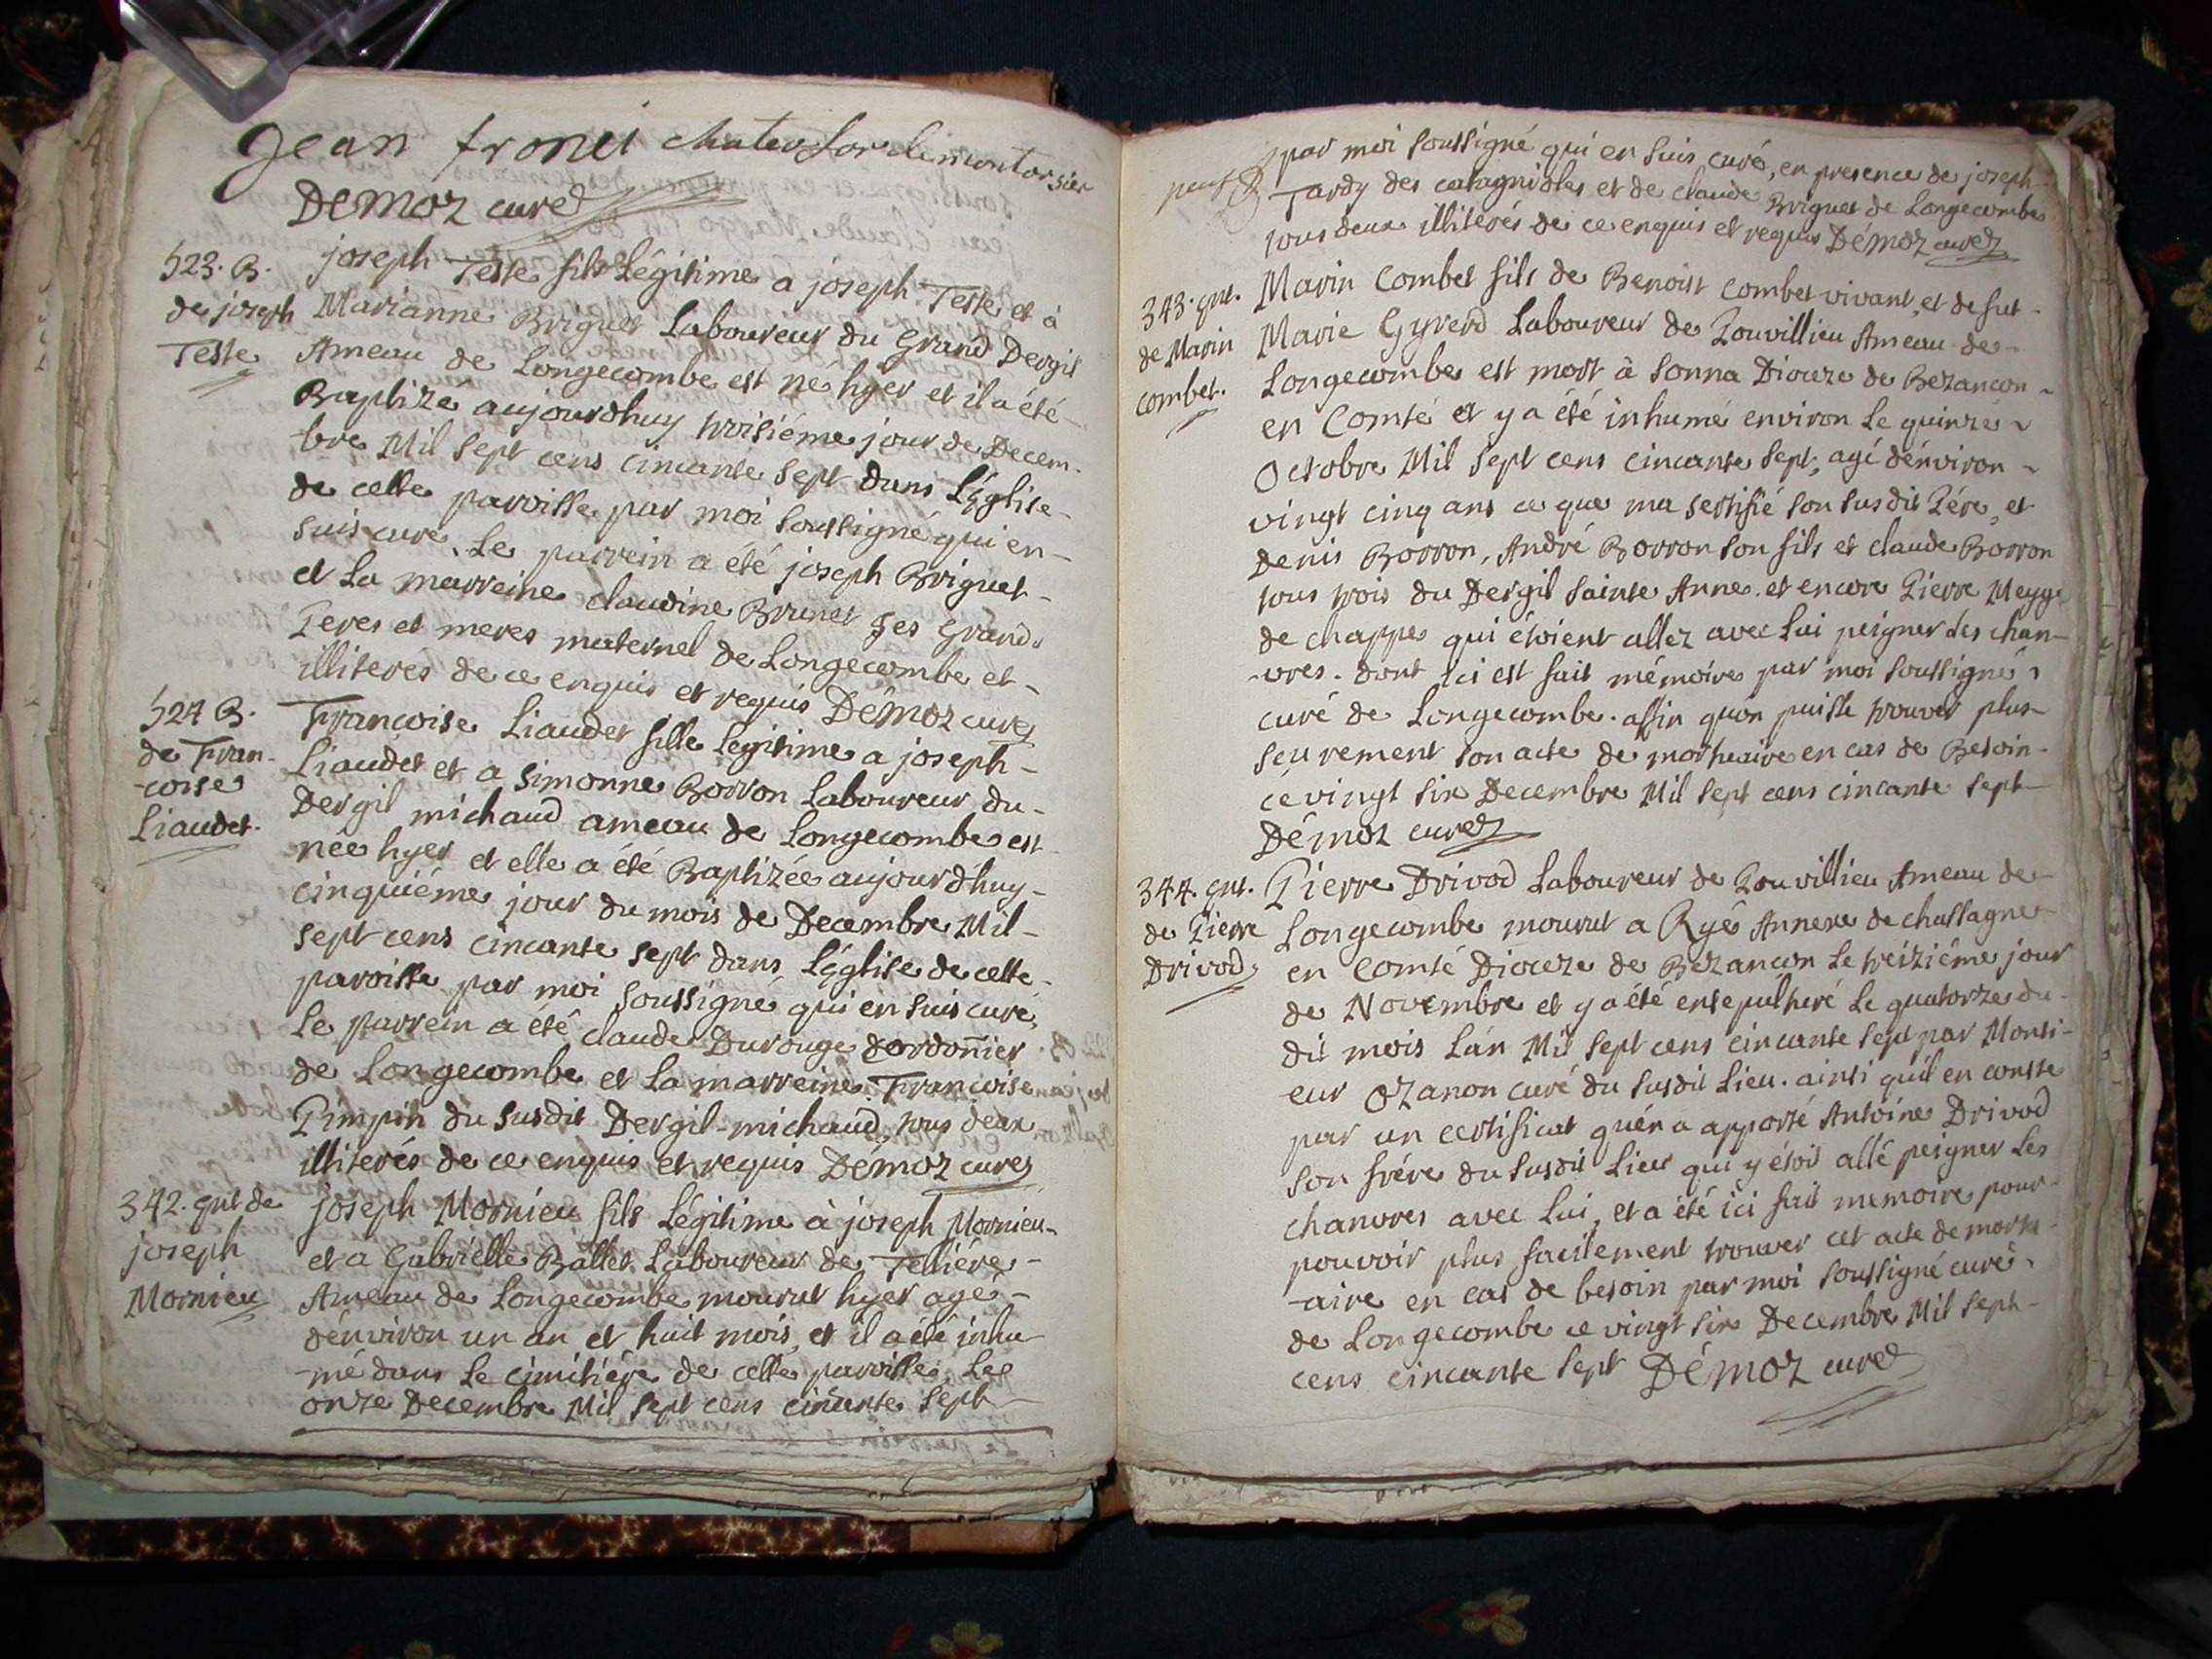 Jean fronci chatev sordimontorsier
DEMOZ curé
523. B.
de joseph
Teste
joseph Teste fils Légitime a joseph Teste et à
Marianne Briguet Laboureur du Grand Dergit
Ameau de Longecombe est né hyer et il a été
Baptizé aujourdhuy troisiéme jour de Decem-
bre Mil sept cens cincante sept dans Léglise
de cette paroisse par moi soussigné qui en
suis curé. Le parrein a été joseph Briguet
et La marreine claudine Brunet ses Grands
Peres et meres maternel de Longecombe et
illiterés de ce enquis et requis Démoz curé
524 B.
de Fran-
-coise
Liaudet.
Françoise Liaudet fille legitime a joseph
Liaudet et a simonne Borron Laboureur du
Dergil michaud ameau de Longecombe est
née hyer et elle a été Baptizée aujourd'huy
cinquiéme jour du mois de Decembre Mil
sept cens cincante sept dans Léglise de cette
paroisse par moi soussigné qui en suis curé,
Le parrein a été claude Durouge cordonnier
de Longecombe et La marreine Françoise
Pimpin du susdit Dergil-michaud, tous deux
illiterés de ce enquis et requis Démoz curé
342. qut de
joseph
Mornieu
joseph Mornieu fils Légitime à joseph Mornieu
et a Gabrielle Ballet Laboureur de Telliére
Ameau de Longecombe mourut hyer agé
dénviron un an et huit mois, et il a été inhu-
-mé dans Le cimitiére de cette paroisse. Le
onze Decembre Mil sept cens cincante sept
par moi soussigné qui en suis curé, en presence de joseph
Tardy des catagnioles et de claude Briguet de Longecombe
tous deux illiterés de ce enquis et requis Démoz curé
343. qut.
de Marin
combet.
Marin Combet fils de Benoist combet vivant, et de fut
Marie Gyrerd Laboureur de Pouvillieu Ameau de
Longecombe est mort à Sonna Dioceze de Bezancon
en Comté et y a été inhumé environ Le quinze
Octobre Mil sept cens cincante sept, agé dénviron
vingt cinq ans ce que ma sertifié son susdit Pére, et
Denis Borron, André Borron son fils et claude Borron
tous trois du Dergil sainte Anne. et encore Pierre Meygr
de chappe qui étoient allez avec Lui peigner Les chan-
-vres. dont ici est fait mémoire par moi soussigné
curé de Longecombe. affin quon puisse trouver plus
seurement son acte de mortuaire en cas de Besoin
ce vingt six Decembre Mil sept cens cincante sept
Démoz curé
344. qut.
de Pierre
Drivod
Pierre Drivod Laboureur de Pouvillieu Ameau de
Longecombe mourut a Ryé Annexe de chassagne
en Comté Dioceze de Bezancon Le treiziéme jour
de Novembre et y a été ensepulturé Le quatorze du
dit mois Lán Mil sept cens cincante sept par Monsi-
eur Ozanon curé du susdit Lieu. ainsi quil en conste
par un certificat quén a apporté Antoine Drivod
son frére du susdit Lieu qui y étoit allé peigner Les
chanvres avec Lui, et a été ici fait memoire pour
pouvoir plus facilement trouver cet acte de mortu-
-aire en cas de besoin par moi soussigné curé
de Longecombe ce vingt six Decembre Mil sept
cens cincante sept Démoz curé